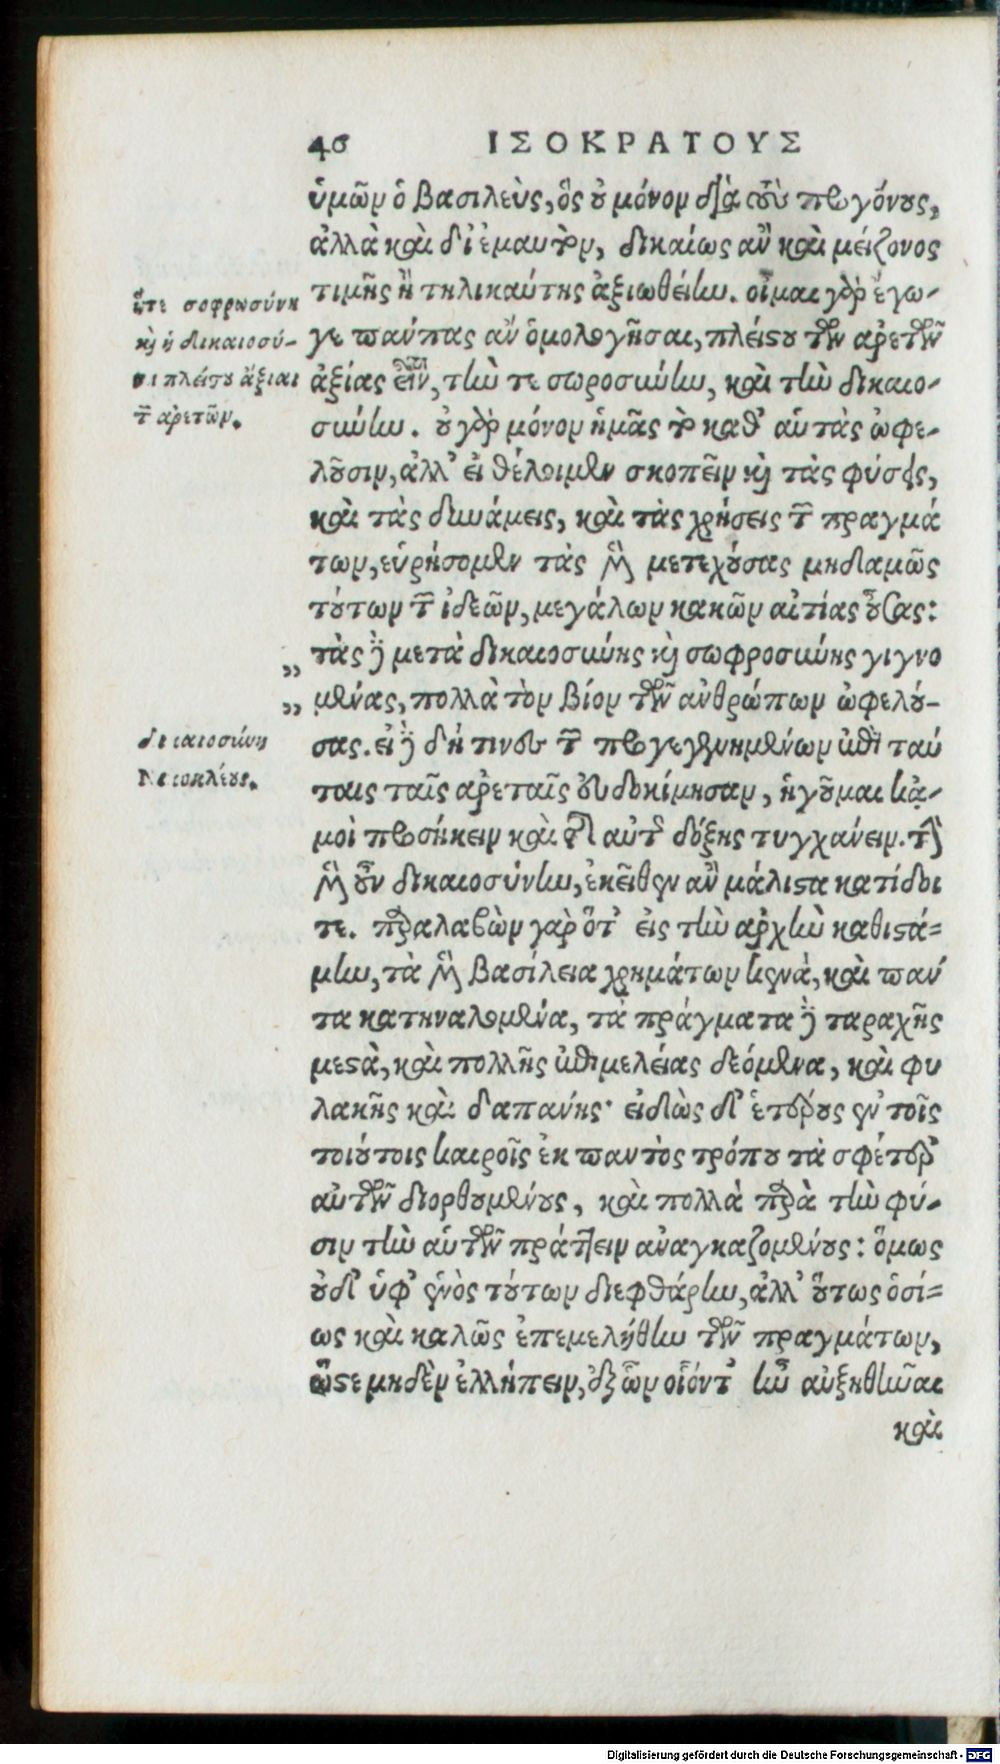 46 ΙΣΟΚΡΑΤΟΥΣ
ὑμῶν ὁ βασιλεὺς, ὃς οὐ μόνον διὰ τοὺς προγόνους,
ἀλλὰ καὶ δι' ἐμαυτὸν, δικαίως ἂν καὶ μείζονος
τιμῆς ἢ τηλικαύτης ἀξιωθείην. οἶμαι γὰρ ἔγω-
γε πάντας ἂν ὁμολογῆσαι, πλείστου τῶν ἀρετῶν
ἀξίας εἶναι, τήν τε σωροσύνην, καὶ τὴν δικαιο-
σύνην. οὐ γὰρ μόνον ἡμᾶς τὸ καθ' αὑτὰς ὠφε-
λοῦσιν, ἀλλ' εἰ θέλοιμεν σκοπεῖν καὶ τὰς φύσεις,
καὶ τὰς δυνάμεις, καὶ τὰς χρήσεις τῶν πραγμά
των, εὑρήσομεν τὰς μὲν μετεχούσας μηδαμῶς
τούτων τῶν ἰδεῶν, μεγάλων κακῶν αἰτίας οὔσας:
„ τὰς δὲ μετὰ δικαιοσύνης καὶ σωφροσύνης γιγνο
„ μένας, πολλὰ τὸν βίον τῶν ἀνθρώπων ὠφελού-
σας. εἰ δὲ δή τινες τῶν προγεγενημένων ἐπὶ ταύ
ταις ταῖς ἀρεταῖς εὐδοκίμησαν, ἡγοῦμαι κἀ-
μοὶ προσήκειν καὶ τῆς αὐτῆς δόξης τυγχάνειν. τὴν
μὲν οὖν δικαιοσύνην, ἐκεῖθεν ἂν μάλιστα κατίδοι
τε. παραλαβὼν γὰρ ὅτ' εἰς τὴν ἀρχὴν καθιστά=
μην, τὰ μὲν βασίλεια χρημάτων κενὰ, καὶ πάν
τα κατηναλωμένα, τὰ πράγματα δὲ ταραχῆς
μεστὰ, καὶ πολλῆς ἐπιμελείας δεόμενα, καὶ φυ
λακῆς καὶ δαπάνης· εἰδὼς δ' ἑτέρους ἐν τοῖς
τοιούτοις καιροῖς ἐκ παντὸς τρόπου τὰ σφέτερ'
αὐτῶν διορθουμένους, καὶ πολλὰ παρὰ τὴν φύ-
σιν τὴν αὑτῶν πράττειν ἀναγκαζομένους: ὅμως
οὐδ' ὑφ' ἑνὸς τούτων διεφθάρην, ἀλλ' οὕτως ὁσί=
ως καὶ καλῶς ἐπεμελήθην τῶν πραγμάτων,
ὥστε μηδὲν ἐλλείπειν, ἐξ ὧν οἷόντ' ἦν αὐξηθῆναι
καὶ
ὅτι σοφρωσύνη
καὶ ἡ δικαιοσύ-
νη πλείστου ἄξιαι
τῶν ἀρετῶν.
δικαιοσύνη
Νικοκλέους.
Digitalisierung gefördert durch die Deutsche Forschungsgemeinschaft - DFG